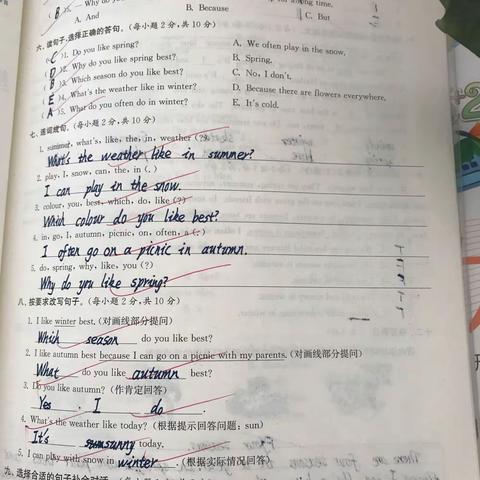 (B) — Why do you
A. And B. Because C. But
六、读句子,选择正确的答句。(每小题2分,共10分)
(C)1. Do you like spring? A. We often play in the snow.
(D)2. Why do you like spring best? B. Spring.
(B)3. Which season do you like best? C. No, I don't.
(E)4. What's the weather like in winter? D. Because there are flowers everywhere.
(A)5. What do you often do in winter? E. It's cold.
七、连词成句。(每小题2分,共10分)
1. summer, what's, like, the, in, weather (?)
What's the weather like in summer?
2. play, I, snow, can, the, in (.)
I can play in the snow.
3. colour, you, best, which, do, like (?)
Which colour do you like best?
4. in, go, I, autumn, picnic, on, often, a (.)
I often go on a picnic in autumn.
5. do, spring, why, like, you (?)
Why do you like spring?
八、按要求改写句子。(每小题2分,共10分)
1. I like winter best. (对画线部分提问)
Which season do you like best?
2. I like autumn best because I can go on a picnic with my parents. (对画线部分提问)
What do you like autumn best?
3. Do you like autumn? (作肯定回答)
Yes , I do .
4. What's the weather like today? (根据提示回答问题: sun)
It's sunny today.
5. I can play with snow in winter . (根据实际情况回答)
九、选择合适的句子补全对话。